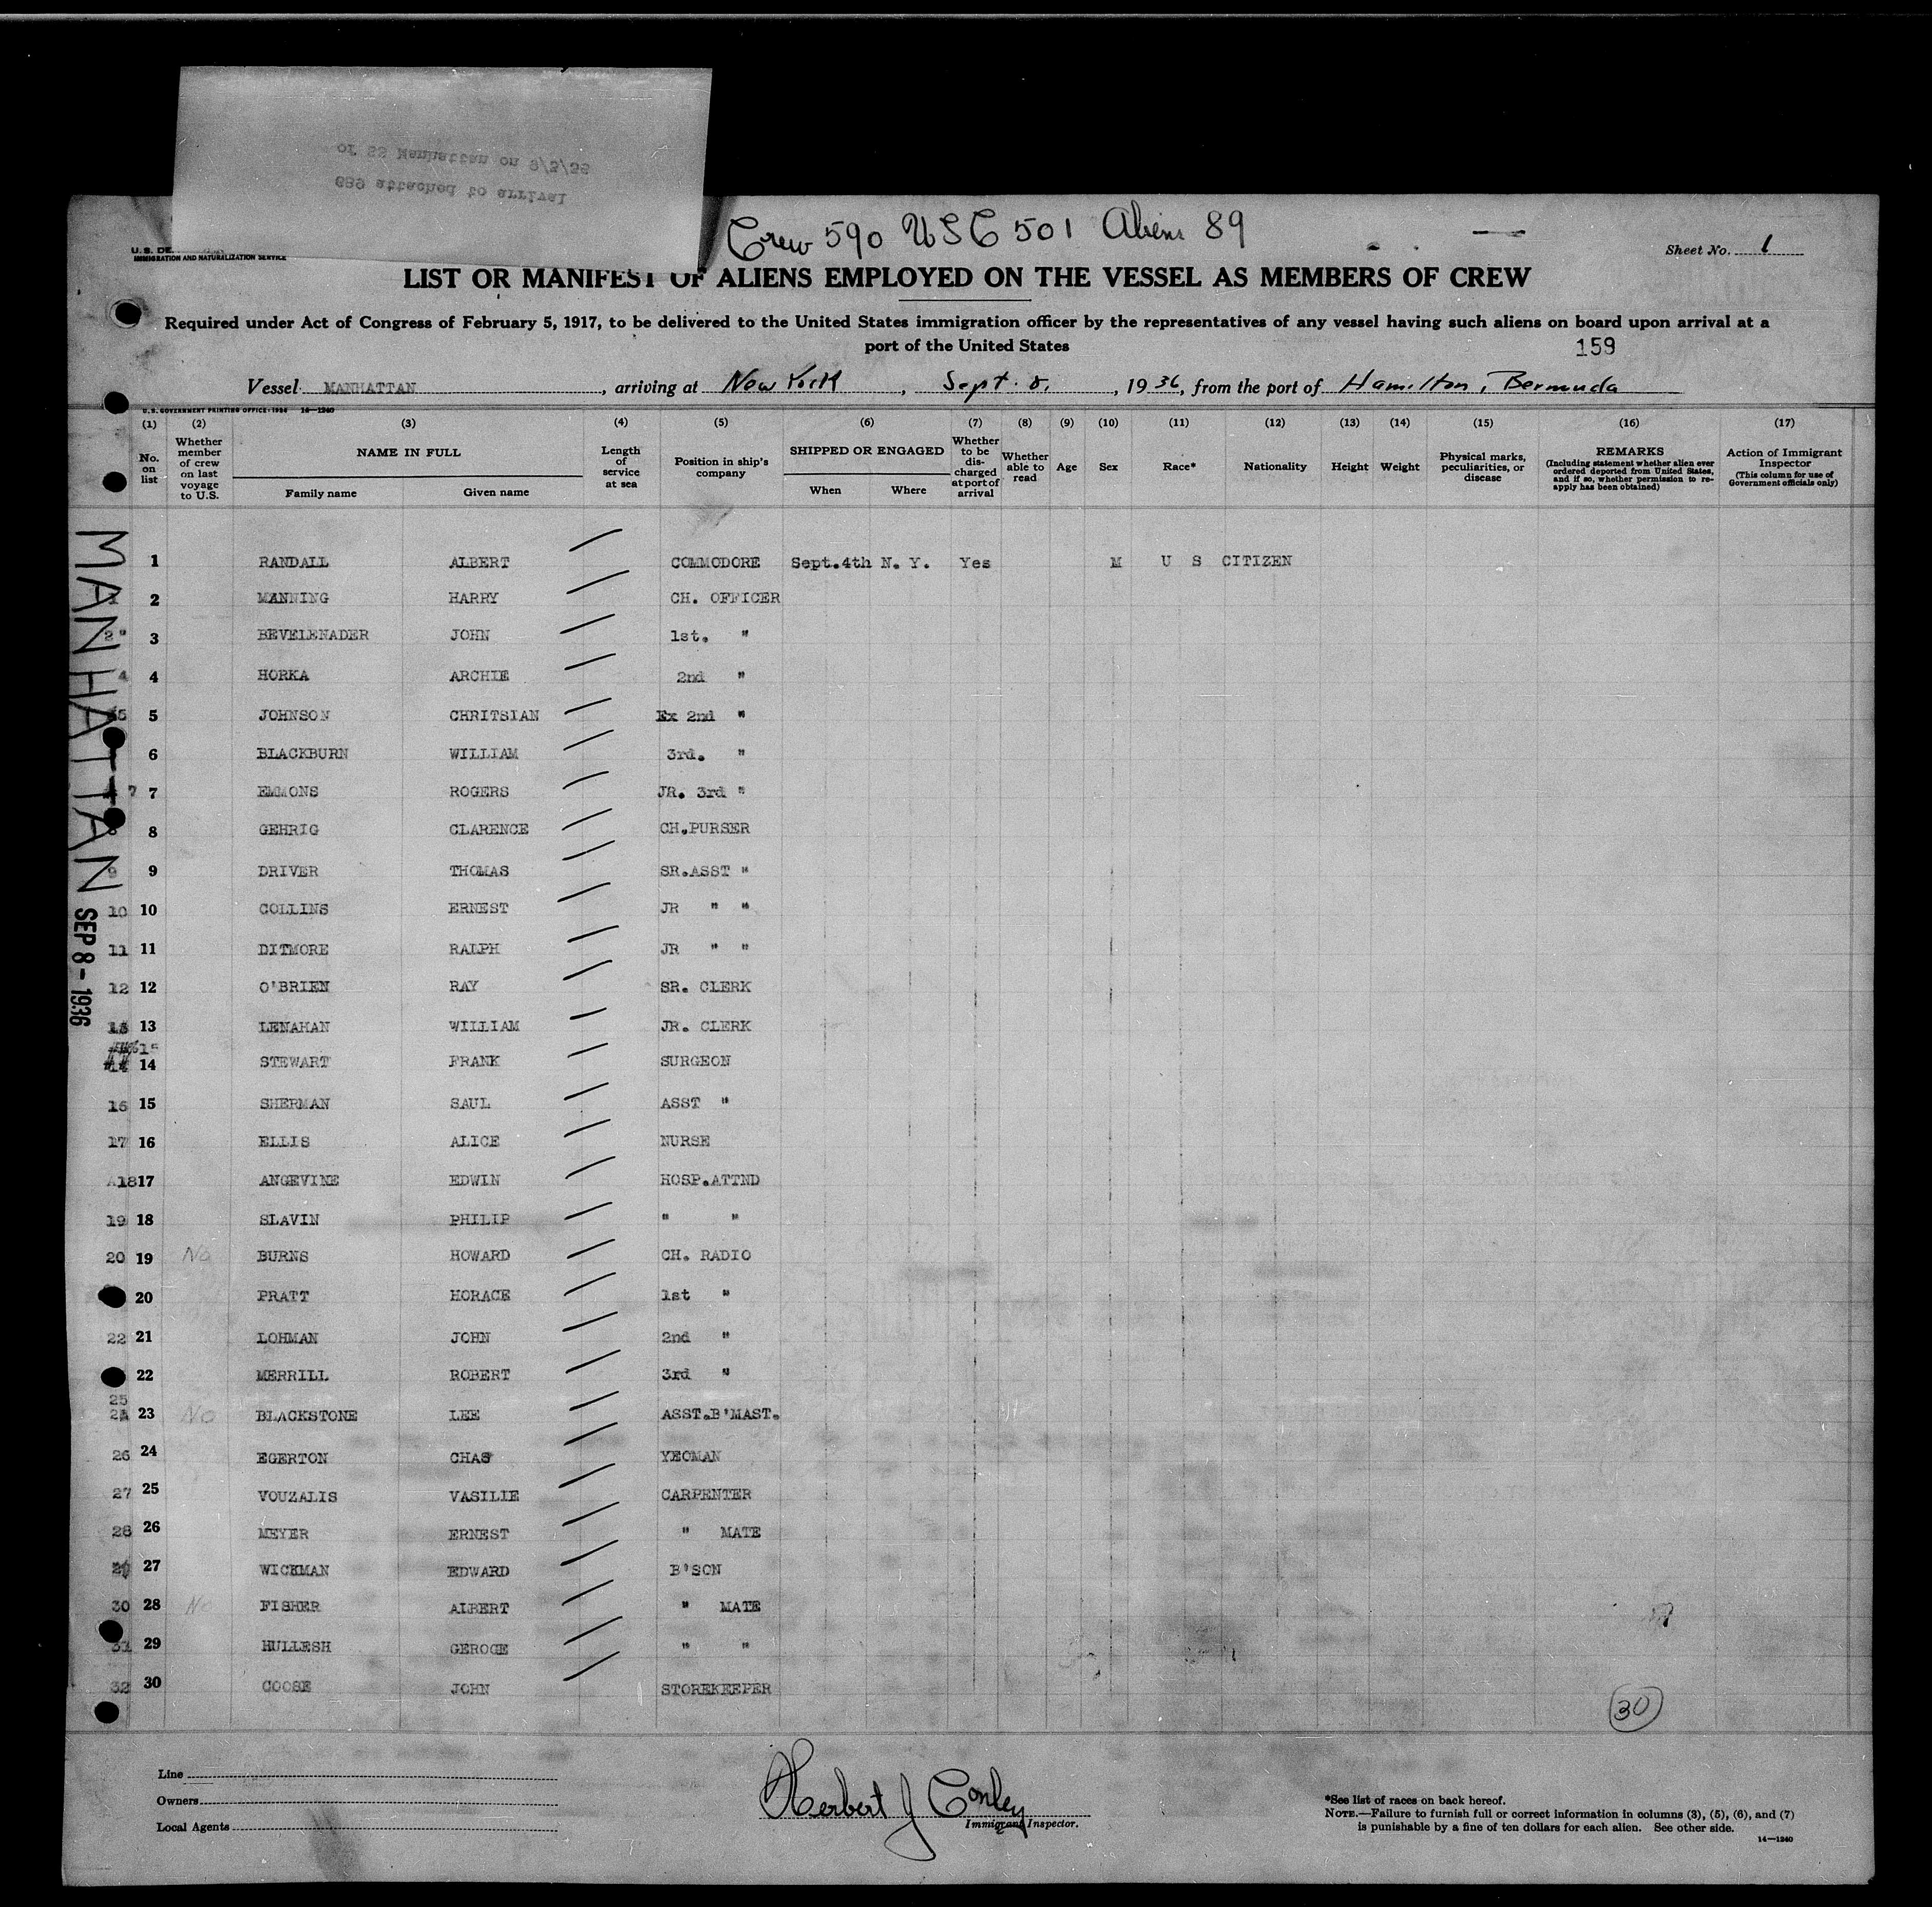 of SS Manhattan on 9/3/36
689 attached to arrival
Crew 590 USC 501 Aliens 89
U. S. DE
IMMIGRATION AND NATURALIZATION SERVICE
Sheet No. 1
LIST OR MANIFEST OF ALIENS EMPLOYED ON THE VESSEL AS MEMBERS OF CREW
Required under Act of Congress of February 5, 1917, to be delivered to the United States immigration officer by the representatives of any vessel having such aliens on board upon arrival at a
port of the United States
159
Vessel MANHATTAN, arriving at New York, Sept. 8, 1936, from the port of Hamilton, Bermuda
U. S. GOVERNMENT PRINTING OFFICE: 1934 14—1240
(1) (2) (3) (4) (5) (6) (7) (8) (9) (10) (11) (12) (13) (14) (15) (16) (17)
No. on list
Whether member of crew on last voyage to U.S.
NAME IN FULL
Family name Given name
Length of service at sea
Position in ship's company
SHIPPED OR ENGAGED
When Where
Whether to be discharged at port of arrival
Whether able to read
Age
Sex
Race*
Nationality
Height
Weight
Physical marks, peculiarities, or disease
REMARKS
(Including statement whether alien ever ordered deported from United States, and if so, whether permission to reapply has been obtained)
Action of Immigrant Inspector
(This column for use of Government officials only)
MANHATTAN SEP 8 - 1936
1 RANDALL ALBERT COMMODORE Sept.4th N. Y. Yes M U S CITIZEN
2 MANNING HARRY CH. OFFICER
3 BEVELENADER JOHN 1st. "
4 4 HORKA ARCHIE 2nd "
5 5 JOHNSON CHRITSIAN Ex 2nd "
6 BLACKBURN WILLIAM 3rd. "
7 7 EMMONS ROGERS JR. 3rd "
8 GEHRIG CLARENCE CH.PURSER
9 9 DRIVER THOMAS SR.ASST "
10 10 COLLINS ERNEST JR " "
11 11 DITMORE RALPH JR " "
12 12 O'BRIEN RAY SR. CLERK
13 13 LENAHAN WILLIAM JR. CLERK
15
14 STEWART FRANK SURGEON
16 15 SHERMAN SAUL ASST "
17 16 ELLIS ALICE NURSE
18 17 ANGEVINE EDWIN HOSP.ATTND
19 18 SLAVIN PHILIP " "
20 19 No BURNS HOWARD CH. RADIO
20 PRATT HORACE 1st "
22 21 LOHMAN JOHN 2nd "
22 MERRILL ROBERT 3rd "
25
24 23 No BLACKSTONE LEE ASST.B'MAST.
26 24 EGERTON CHAS YEOMAN
27 25 VOUZALIS VASILIE CARPENTER
28 26 MEYER ERNEST " MATE
29 27 WICKMAN EDWARD B'SON
30 28 No FISHER ALBERT " MATE
31 29 HULLESH GEROGE " "
32 30 COOSE JOHN STOREKEEPER
30
Line
Owners
Local Agents
Herbert J Conley
Immigrant Inspector.
*See list of races on back hereof.
NOTE.—Failure to furnish full or correct information in columns (3), (5), (6), and (7)
is punishable by a fine of ten dollars for each alien. See other side.
14—1240